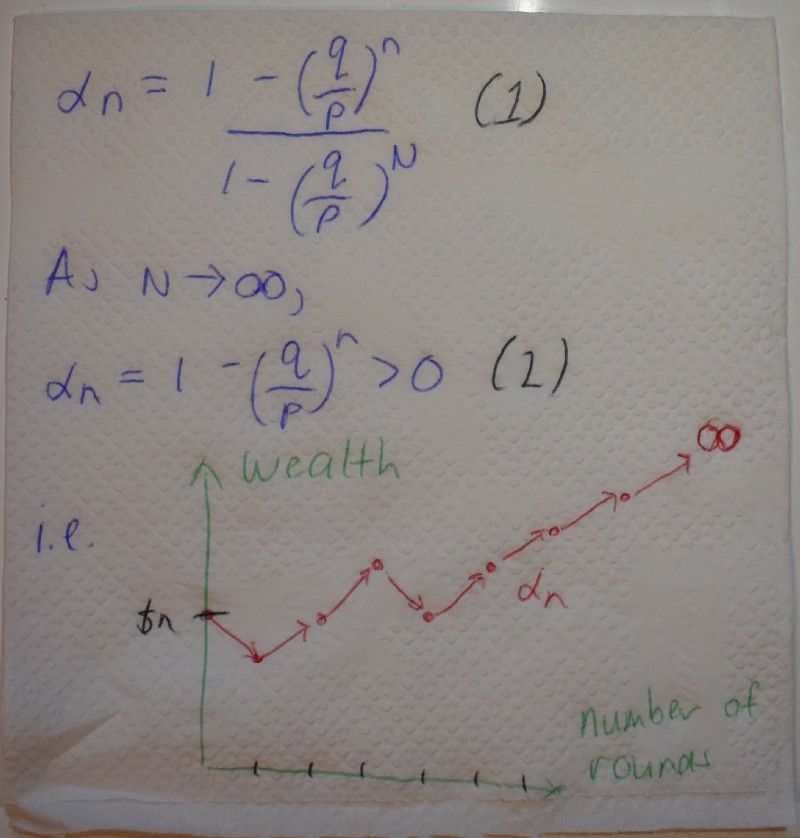 αn = 1 - (q/p)^n / 1 - (q/p)^N (1)
As N → ∞,
αn = 1 - (q/p)^n > 0 (2)
wealth
∞
i.e.
αn
$n
number of
rounds